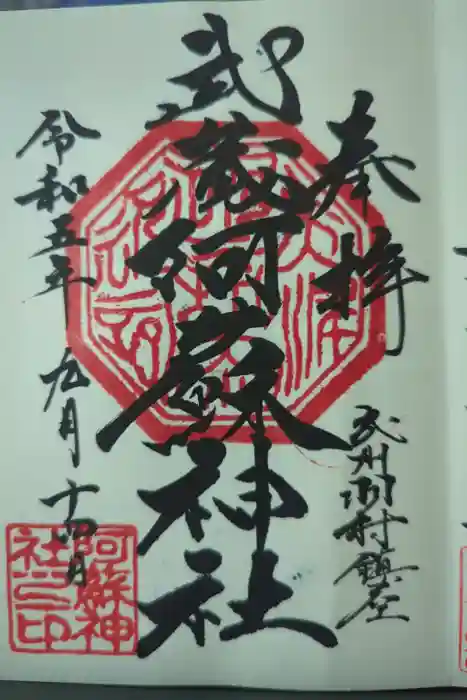 奉拝
武州羽村鎮座
武蔵阿蘇神社
令和五年 九月十四日
阿蘇神
社之印